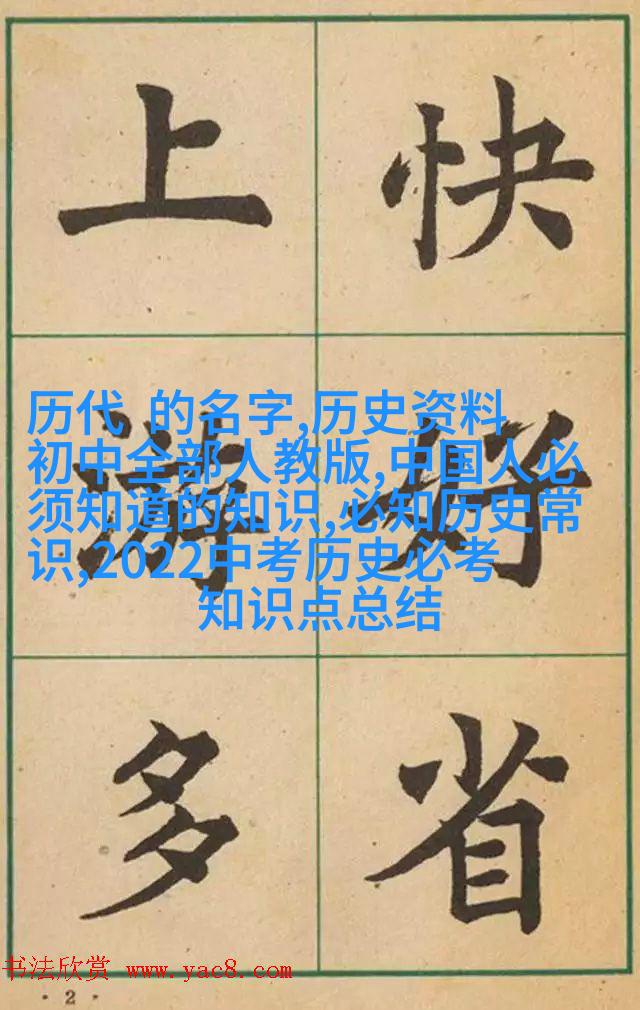 上游多
快好省
历代 的名字,历史资料
初中全部人教版,中国人必
须知道的知识,必知历史常
识,2022中考历史必考
知识点总结
书法欣赏 www.yac8.com
· 2 ·